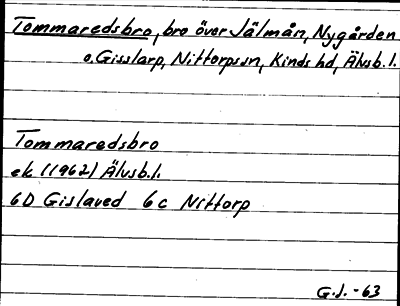 Tommaredsbro, bro över Jälmån, Nygården
o. Gisslarp, Nittorps sn, Kinds hd, Älvsb. l.
Tommaredsbro
ek (1962) Älvsb. l.
6D Gislaved 6c Nittorp
G.J. -63